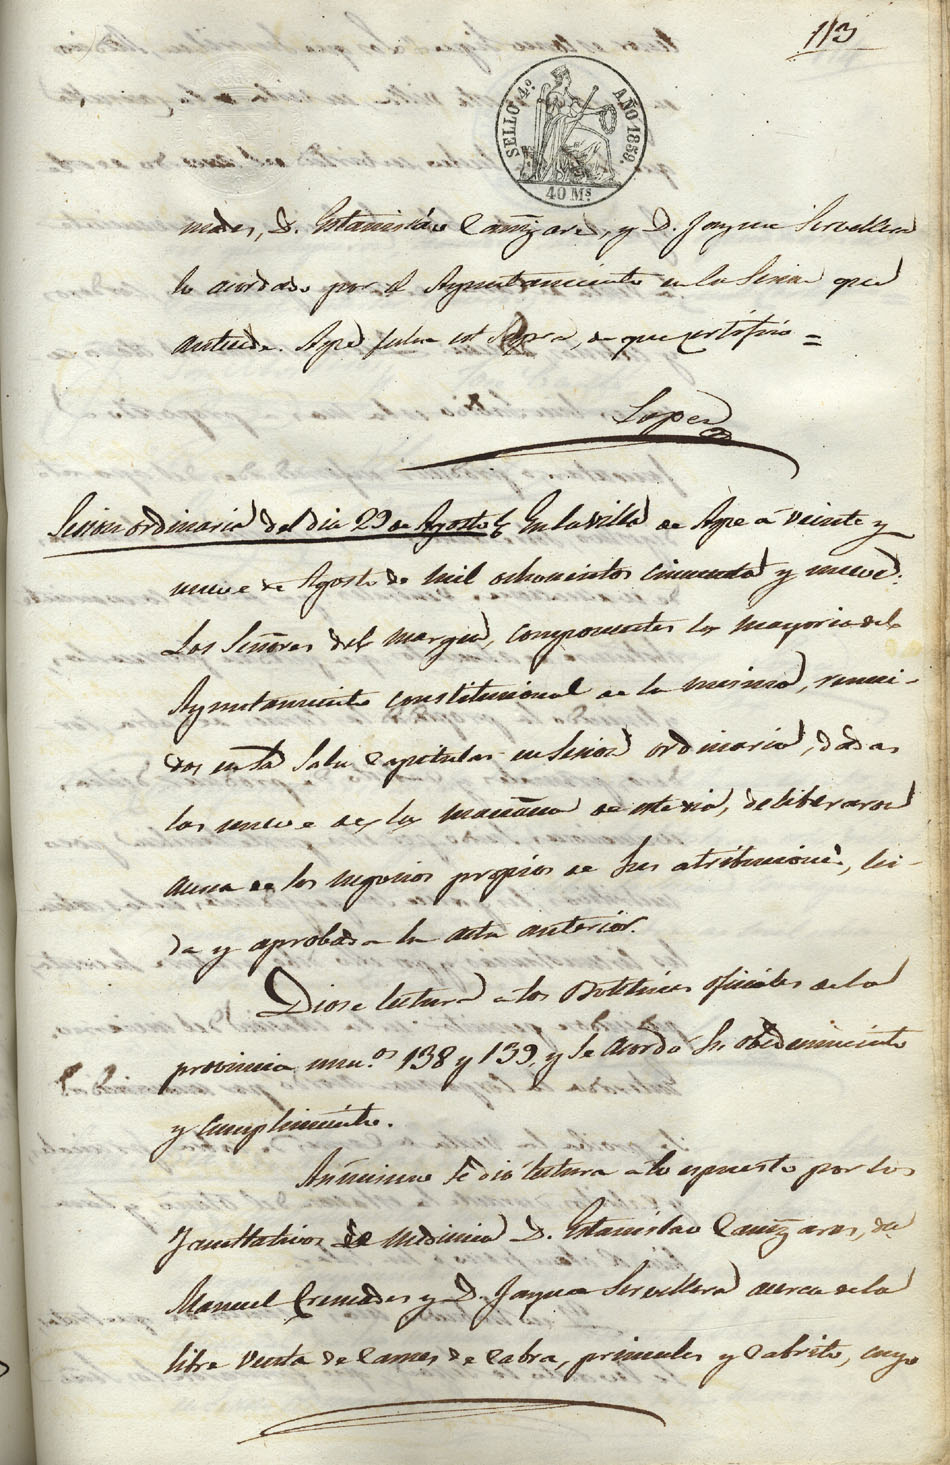 113
SELLO 4º AÑO 1859.
40 Ms
mades, D. Estanislao Cañizares, y D. Jayme Servellera
lo acordado por el Ayuntamiento en la Sesion que
antecede. Aspe fecha ut Supra, de que certifico =
Lopez
Sesion ordinaria del dia 29 de Agosto En la villa de Aspe a veinte y
nueve de Agosto de mil ochocientos cincuenta y nueve.
Los Señores del margen, componentes la mayoria del
Ayuntamiento constitucional de la misma, reuni-
dos en la Sala Capitular en Sesion ordinaria, dadas
las nueve de la mañana de este dia, deliberaron
acerca de los negocios propios de sus atribuciones, lei-
da y aprobada la acta anterior.
Diose lectura a los Boletines oficiales de la
provincia num.os 138 y 139, y se acordó su obedecimiento
y cumplimiento.
Asimismo se dio lectura a lo espuesto por los
Facultativos de medicina D. Estanislao Cañizares, D.
Manuel Cremades y D. Jayme Servellera acerca de la
libre venta de Carnes de Cabra, primales y Cabrito, cuyo